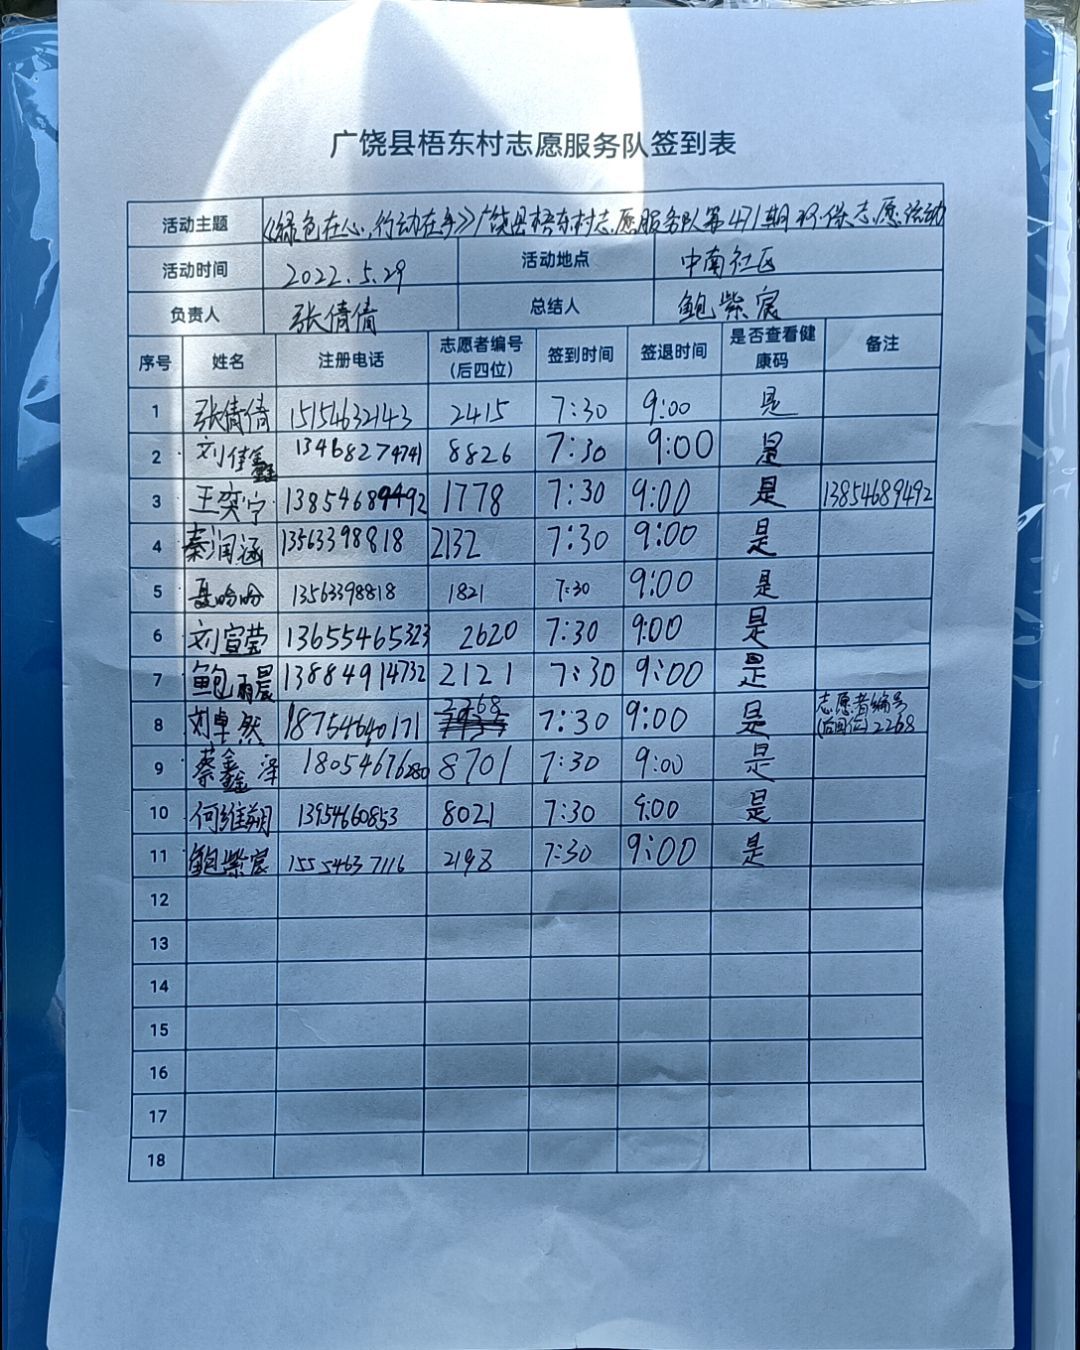 广饶县梧东村志愿服务队签到表
活动主题 《绿色在心,行动在手》广饶县梧东村志愿服务队第471期环保志愿活动
活动时间 2022.5.29 活动地点 中南社区
负责人 张倩倩 总结人 鲍紫宸
序号 姓名 注册电话 志愿者编号(后四位) 签到时间 签退时间 是否查看健康码 备注
1 张倩倩 15154632143 2415 7:30 9:00 是
2 刘佳鑫 13468274741 8826 7:30 9:00 是
3 王奕宁 13854689492 1778 7:30 9:00 是 13854689492
4 秦润涵 13563398818 2132 7:30 9:00 是
5 聂晗晗 13563398818 1821 7:30 9:00 是
6 刘宣莹 13655465323 2620 7:30 9:00 是
7 鲍雨晨 13884914732 2121 7:30 9:00 是
8 刘卓然 18754640171 2268 7:30 9:00 是 志愿者编号(后四位)2268
9 蔡鑫泽 18054676280 8701 7:30 9:00 是
10 何维翔 13954660853 8021 7:30 9:00 是
11 鲍紫宸 15554637116 2198 7:30 9:00 是
12
13
14
15
16
17
18